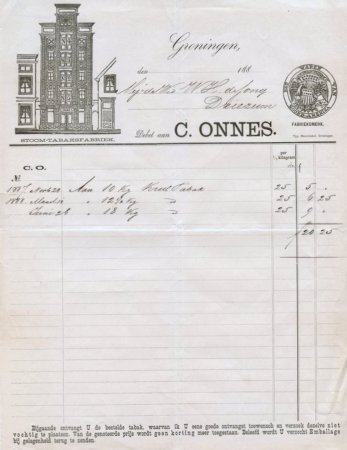 Groningen,
den 188
W H de Jong
Debet aan C. ONNES.
STOOM-TABAKSFABRIEK.
WAPEN VAN
FABRIEKSMERK.
per
½ kilogram
C. O.
No
1887 Novb 28 Aan 10 Kg Tabak 25 5 "
1888 Maart " 12½ Kg " 25 6 25
Juni 26 " 18 Kg " 25 9 "
f 20 25
Bijgaande ontvangt U de bestelde tabak, waarvan ik U eene goede ontvangst toewensch en verzoek dezelve niet
vochtig te plaatsen. Van de genoteerde prijs wordt geen korting meer toegestaan. Beleefd wordt U verzocht Emballage
bij gelegenheid terug te zenden.